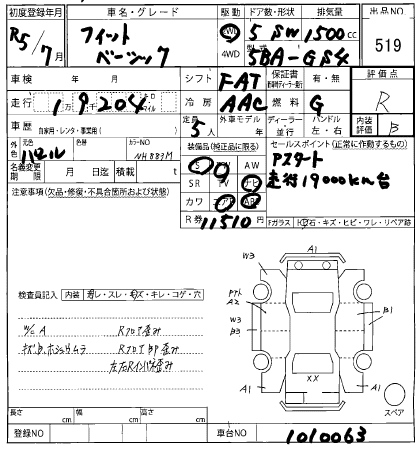 初度登録年月 車名・グレード 駆動 ドア数・形状 排気量 出品NO
R5/7月 フィット ベーシック 2WD 5 SW 1500cc 519
4WD 型式 5BA-GS4
車検 年 月 シフト FAT 保証書 有・無 評価点
走行 1万9204 キロ マイル 冷房 AAC 燃料 G R
車歴 自家用・レンタ・事業用( ) 定員 5人 外車モデル 年 ディーラー 並行 ハンドル 左・右 内装評価 B
元色 パール 色替 カラーNO NH883M 装備品(純正品に限る) セールスポイント(正常に作動するもの)
名義変更期限 月 日迄 積載 t
PS PW TV AW Pスタート
SR ナビ 走行19000km台
カワ エアB ABS
R券 11510円
注意事項(欠品・修復・不具合箇所および状態)
Fガラス 飛石・キズ・ヒビ・ワレ・リペア跡
検査員記入 内装 汚レ・スレ・キズ・キレ・コゲ・穴
W/C A Rフロア歪み
A1
W3
W3
A2
W3
B3
B1
XX
A1
A1
スペア
長さ cm 幅 cm 高さ cm
登録NO 車台NO 1010063